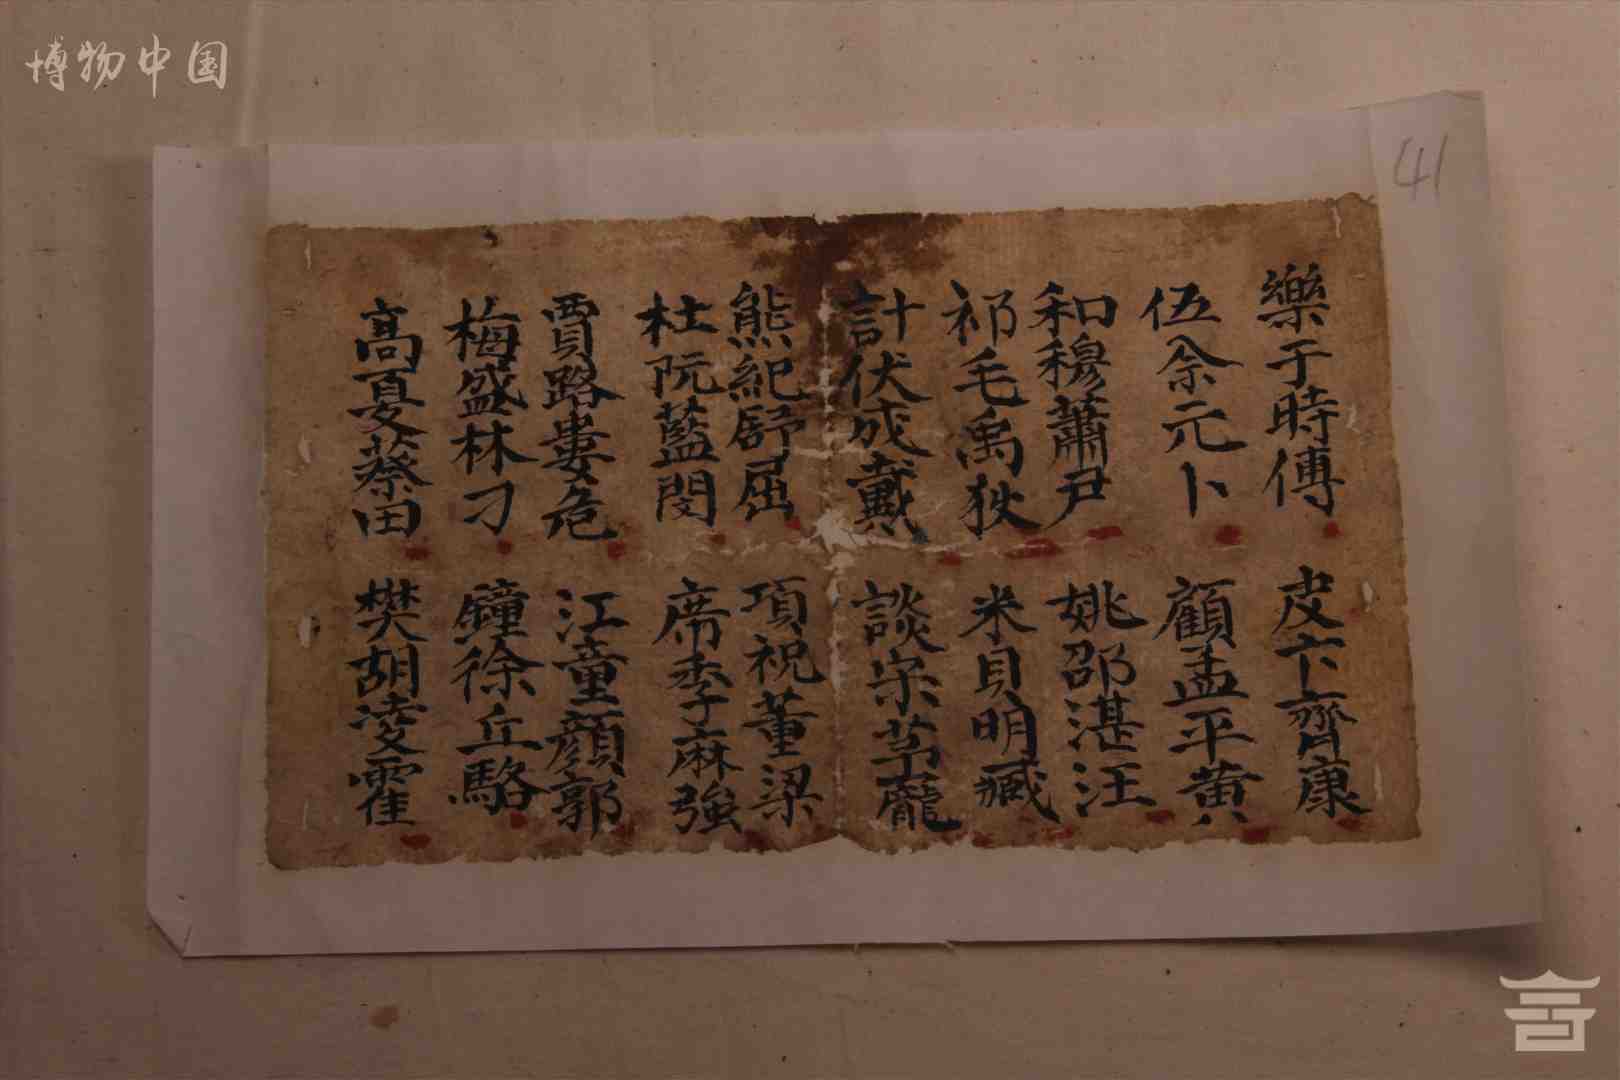 博物中国
41
樂于時傅 皮卞齊康
伍余元卜 顧孟平黄
和穆蕭尹 姚邵湛汪
祁毛禹狄 米貝明臧
計伏成戴 談宋茅龐
熊紀舒屈 項祝董梁
杜阮藍閔 席季麻強
賈路婁危 江童顔郭
梅盛林刁 鐘徐丘駱
髙夏蔡田 樊胡淩霍